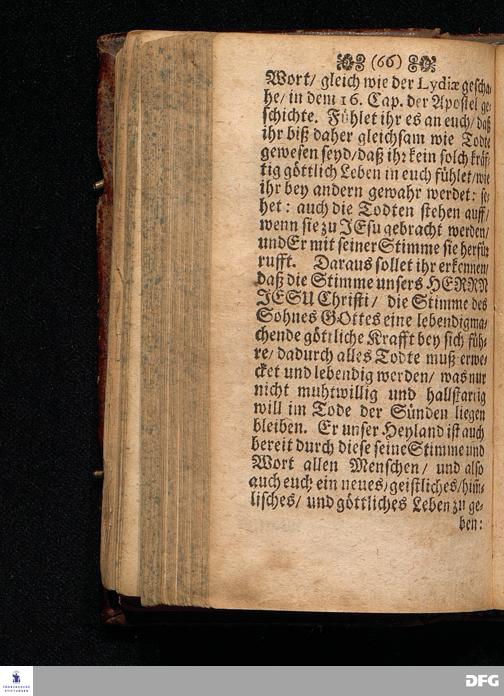 (66)
Wort/ gleich wie der Lydiæ gescha-
he/ in dem 16. Cap. der Apostel ge-
schichte. Fühlet ihr es an euch/ daß
ihr biß daher gleichsam wie Todte
gewesen seyd/ daß ihr kein solch kräf-
tig göttlich Leben in euch fühlet/ wie
ihr bey andern gewahr werdet: se-
het: auch die Todten stehen auff/
wenn sie zu JEsu gebracht werden/
und Er mit seiner Stimme sie herfür
rufft. Daraus sollet ihr erkennen/
daß die Stimme unsers HERRN
JESU Christi/ die Stimme des
Sohnes GOttes eine lebendigma-
chende göttliche Krafft bey sich füh-
re/ dadurch alles Todte muß erwe-
cket und lebendig werden/ was nur
nicht muhtwillig und hallstarrig
will im Tode der Sünden liegen
bleiben. Er unser Heyland ist auch
bereit durch diese seine Stimme und
Wort allen Menschen/ und also
auch euch ein neues/ geistliches/ him-
lisches/ und göttliches Leben zu ge-
ben:
FRANCKESCHE
STIFTUNGEN
DFG